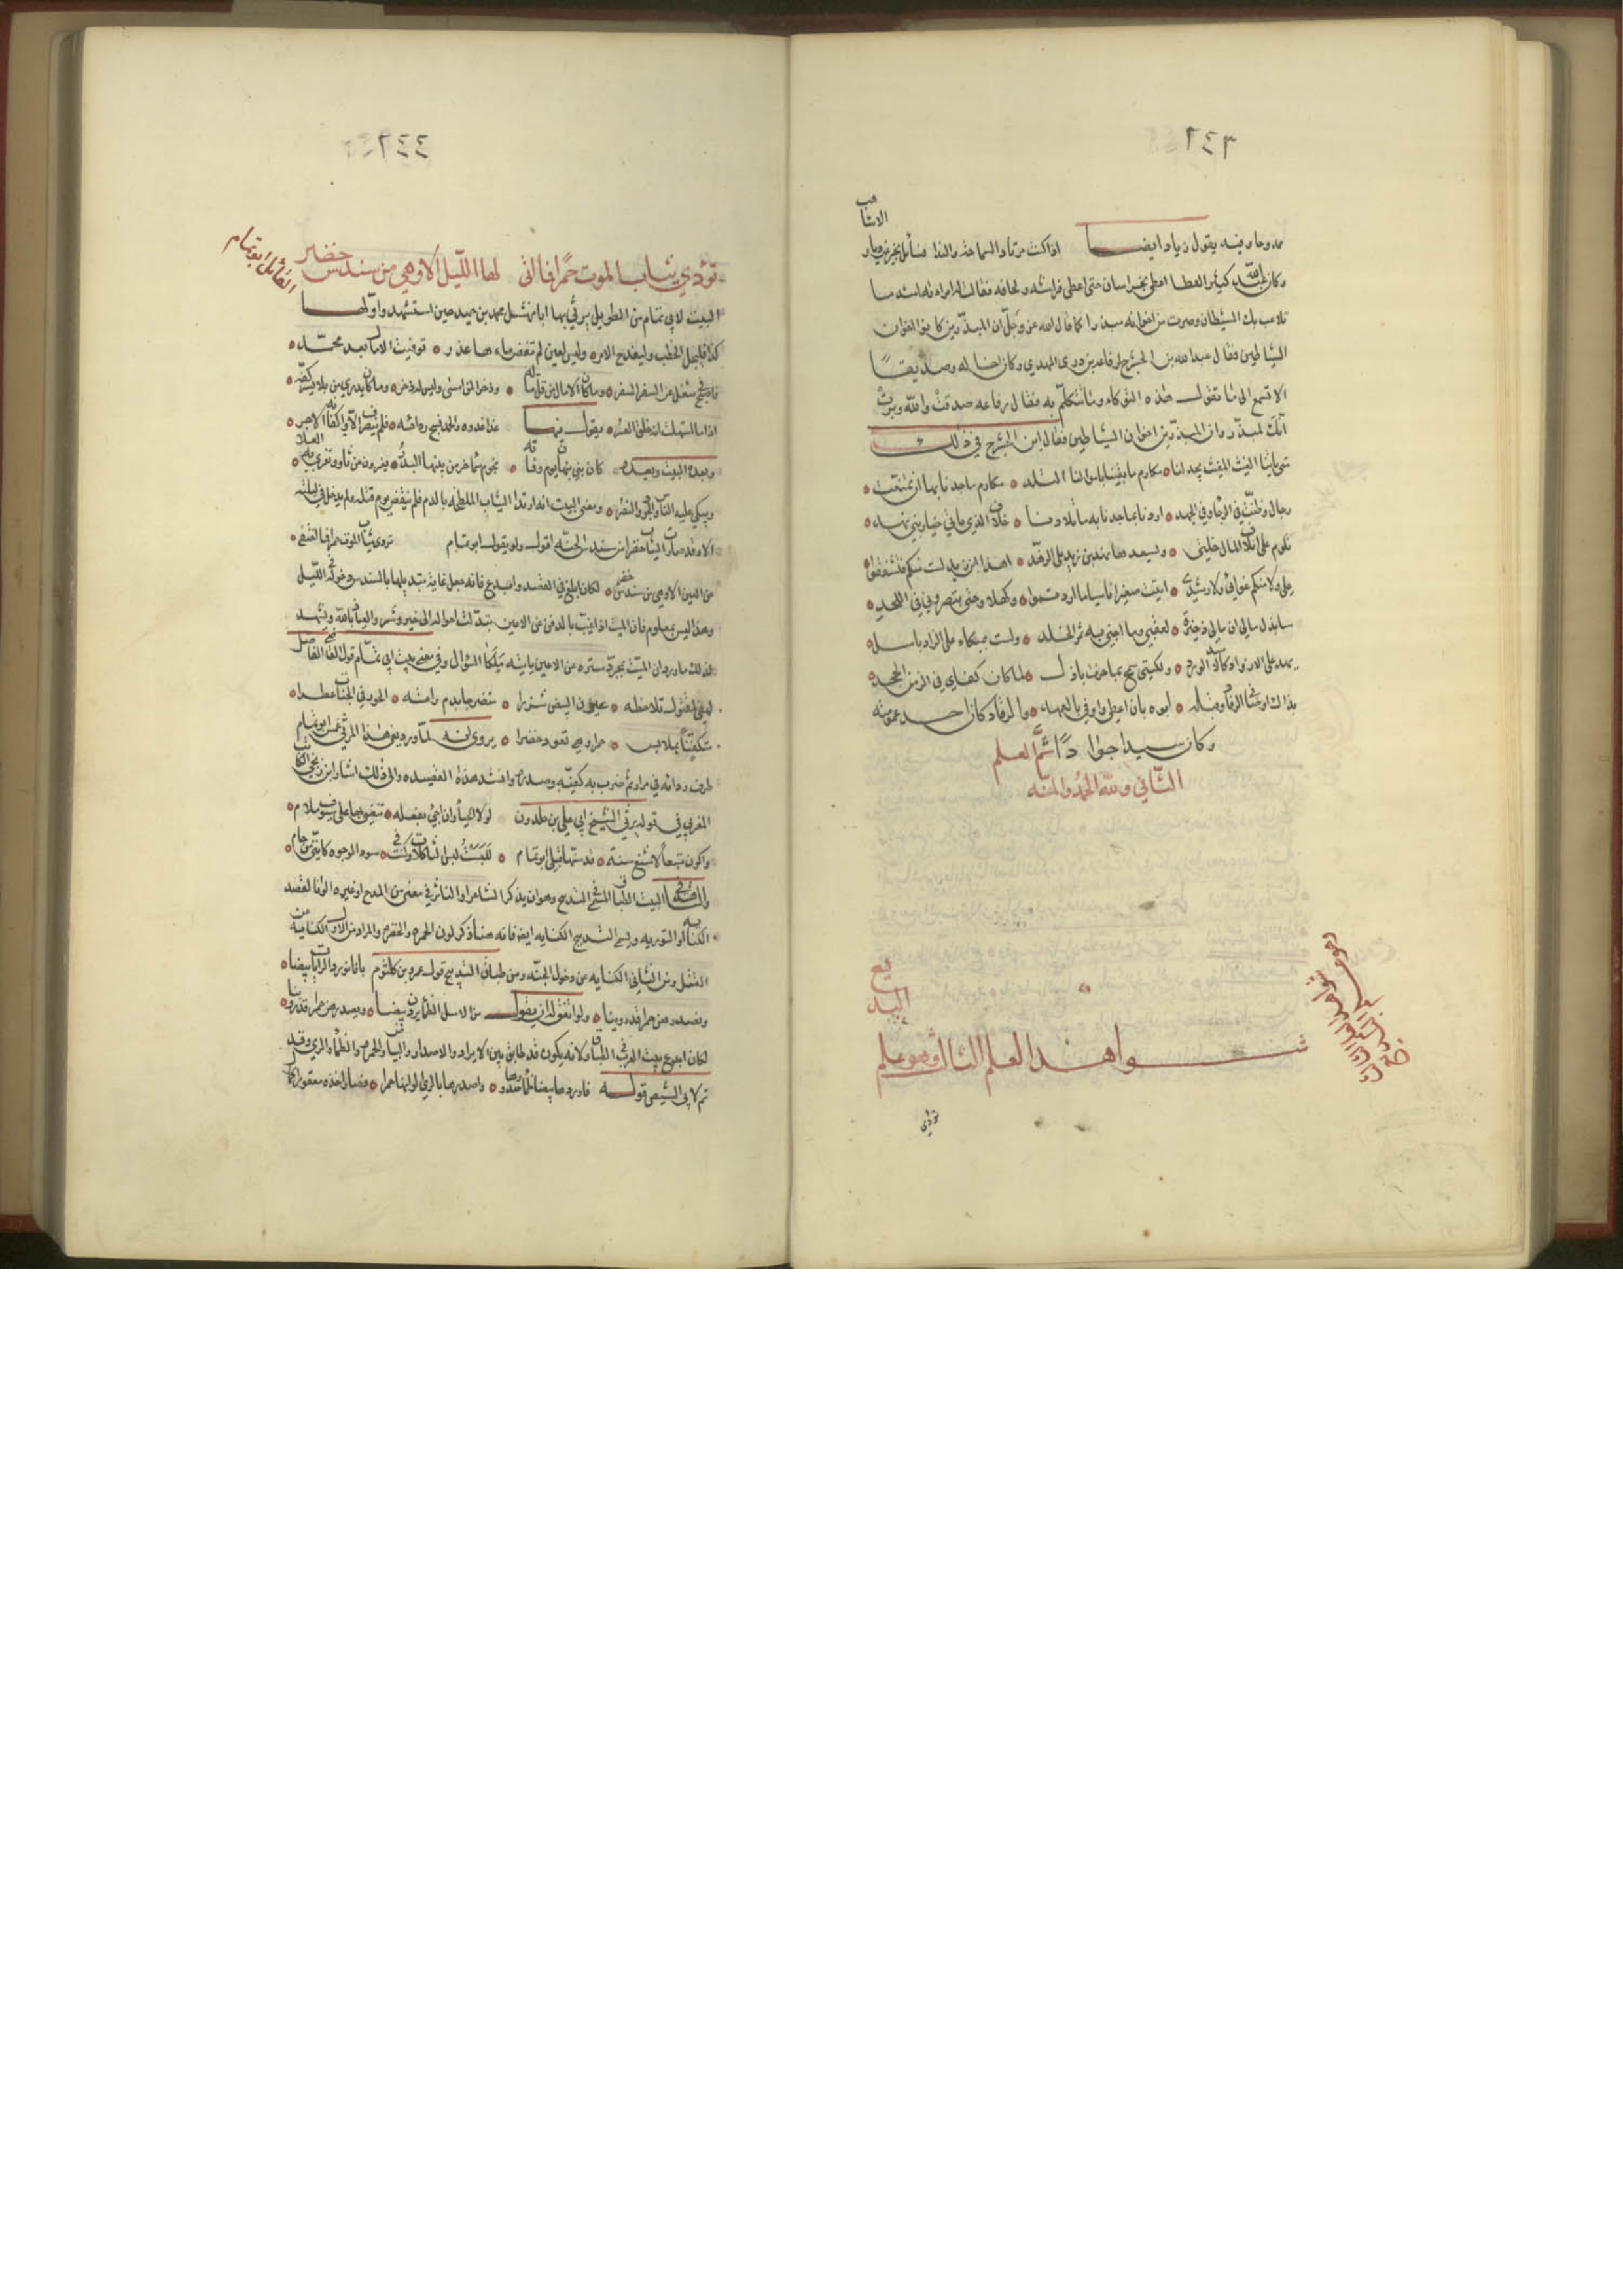 ٣٤٦
ممدوحا وفيه يقول زياد ايضا اذا كنت مرتاد السماحة والندا فسائل تخبر عن ديار
الاشاهب
وكان عبد الله كثير العطا اعطى بخراسان حتى اعطى فراشه ولحافه فقالت له امراته لشد ما
تلاعب بك الشيطان وصرت من اخوانه مبذرا كما قال الله عز وجل ان المبذرين كانوا اخوان
الشياطين فقال عبد الله بن الحشرج لرفاعه بن دوى النهدي وكان اخا له وصديقا
الا تسمع الى ما تقول هذه النوكاء وما تتكلم به فقال رفاعه صدقت والله وبرت
انك لمبذر وان المبذرين اخوان الشياطين فقال ابن الحشرج في ذلك
متى ياتنا الغيث المغيث تجد لنا مكارم ما تعيا باموالنا التلد مكارم ما جدنا بها اذ تمنعت
رجال وضنت في الرخاء وفي الجهد اردنا بما جدنا به من تلادنا خلاف الذي ياتي خيار بني نهد
تلوم على اتلافي المال خلتي ويسعدها نهد بن زيد على الزهد انهد بن زيد لست منكم فتشفقوا
علي ولا منكم غوائي ولا رشدي ابيت صغيرا ناشيا ما اردتموا وكهلا وحتى تبصروني في اللحد
سابذل مالي ان مالي ذخيرة لعقبي وما اجني به ثمر الخلد ولست بمبكاء على الزاد باسل
يهر على الازواد كالاسد الورد ولكنني سمح بما حزت باذل لما كان كفاي في الزمن الجحد
بذلك اوصاني الرقاد وقبله ابوه بان اعطي واوفي بالعهد والرقاد كان احد عمومته
وكان سيدا جوادا تم العلم
الثاني ولله الحمد والمنه
البديع
شواهد العلم الثالث وهو علم
تردى
٦٤٤
تردى ثياب الموت حمرا فما اتى لها الليل الا وهي من سندس خضر
القائل ابو تمام
البيت لابي تمام من الطويل يرثي بها ابا نهشل محمد بن حميد حين استشهد واولها
كذا فليجل الخطب وليفدح الامر وليس لعين لم تفض ماءها عذر توفيت الامال بعد محمد
فاصبح في شغل عن السفر السفر وما كان الا مال من قل ماله وذخرا لمن امسى وليس له ذخر وما كان يدري من بلا يسر كفه
اذا ما استهلت انه خلق العسر ويقول فيها غدا غدوه والحمد نسج ردائه فلم ينصرف الا واكفانه الاجر
وبعده البيت وبعده كان بني نبهان يوم وفاته نجوم سماء خر من بينها البدر يعزون عن ثاو تعزى به العلا
ويبكي عليه الباس والجود والشعر ومعنى البيت انه ارتدا الثياب الملطخه بالدم فلم ينقض يوم قتله ولم يدخل في ليلته
الا وقد صارت الثياب خضرا من سندس الجنه اقول ولو يقول ابو تمام تردى ثياب الموت حمرا فما اختفى
عن العين الا وهي من سندس خضر لكان ابلغ في القصد
وهذا ليس بمعلوم فان الميت اذا غيب بالدفن عن الاعين تبدلت احواله الى خير وشر والعياذ بالله ويشهد
يروى انه لما ورد نعي هذا المرثي غمس ابو تمام
طرف ردائه في مداد ثم ضرب به كفيه وصدره وانشد هذه القصيده والى ذلك اشار ابن زنجي الكاتب
المغربي في قوله يرثي الشيخ ابي علي بن خلدون لولا الحياء وان اجيء بفعله تنعى بها علي سيوف ملام
واكون متبعا لاشنع سنة قد سنها قبلي ابو تمام للبست لبس الثاكلات وكنت في سود الوجوه كانني من حام
والشاهد في البيت الطباق المسمى التدبيج وهو ان يذكر الشاعر او الناثر في معنى من المدح او غيره الوانا لقصد
الكنايه او التوريه ويسمى التدبيج الكنايه ايضا فانه هنا ذكر لون الحمره والخضره والمراد من الاول الكنايه عن
القتل ومن الثاني الكنايه عن دخول الجنه ومن طباق التدبيج قول عمرو بن كلثوم بانا نورد الرايات بيضا
ونصدرهن حمرا قد روينا ولو اتفق له ان يقول من الاسل الظماء يردن بيضا ونصدرهن حمرا قد روينا
لكان ابدع بيت العرب في الطباق لانه يكون قد طابق بين الايراد والاصدار والبياض والحمره والظما والري وقد
تم لابي الشيص قوله فاوردها بيضا ظماء صدورها واصدرها بالري الوانها حمرا